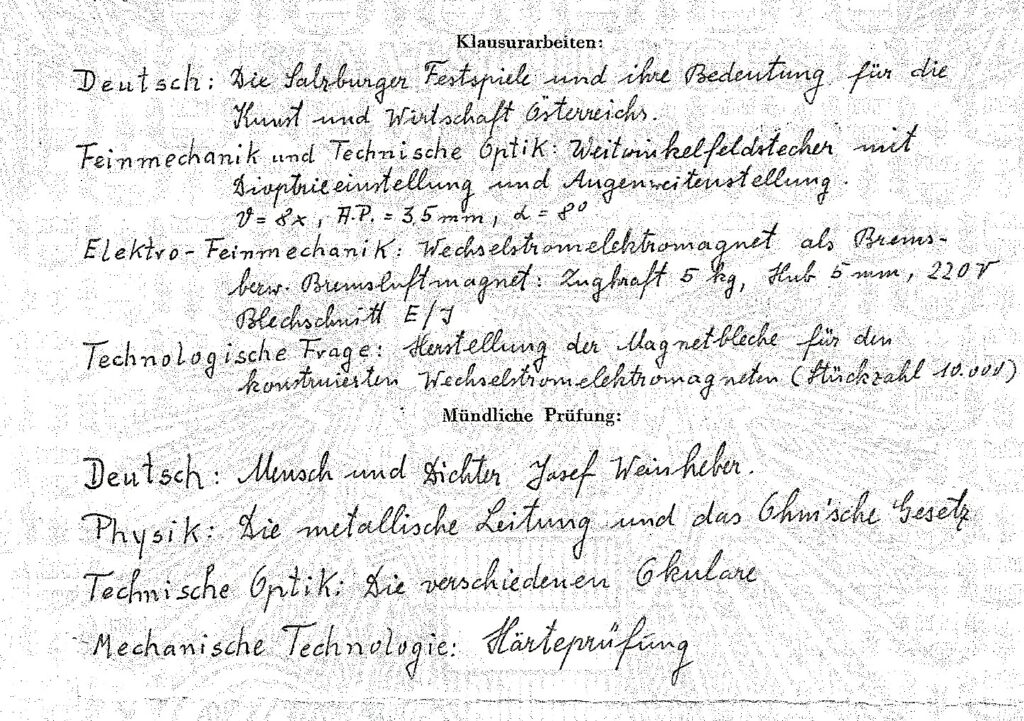 Klausurarbeiten:
Deutsch: Die Salzburger Festspiele und ihre Bedeutung für die
Kunst und Wirtschaft Österreichs.
Feinmechanik und Technische Optik: Weitwinkelfeldstecher mit
Dioptrieeinstellung und Augenweitenstellung.
V = 8x, A.P. = 3,5 mm, α = 8°
Elektro-Feinmechanik: Wechselstromelektromagnet als Brems-
bezw. Bremsluftmagnet: Zugkraft 5 kg, Hub 5 mm, 220 V
Blechschnitt E/J
Technologische Frage: Herstellung der Magnetbleche für den
konstruierten Wechselstromelektromagneten (Stückzahl 10.000)
Mündliche Prüfung:
Deutsch: Mensch und Dichter Josef Weinheber.
Physik: Die metallische Leitung und das Ohm'sche Gesetz
Technische Optik: Die verschiedenen Okulare
Mechanische Technologie: Härteprüfung